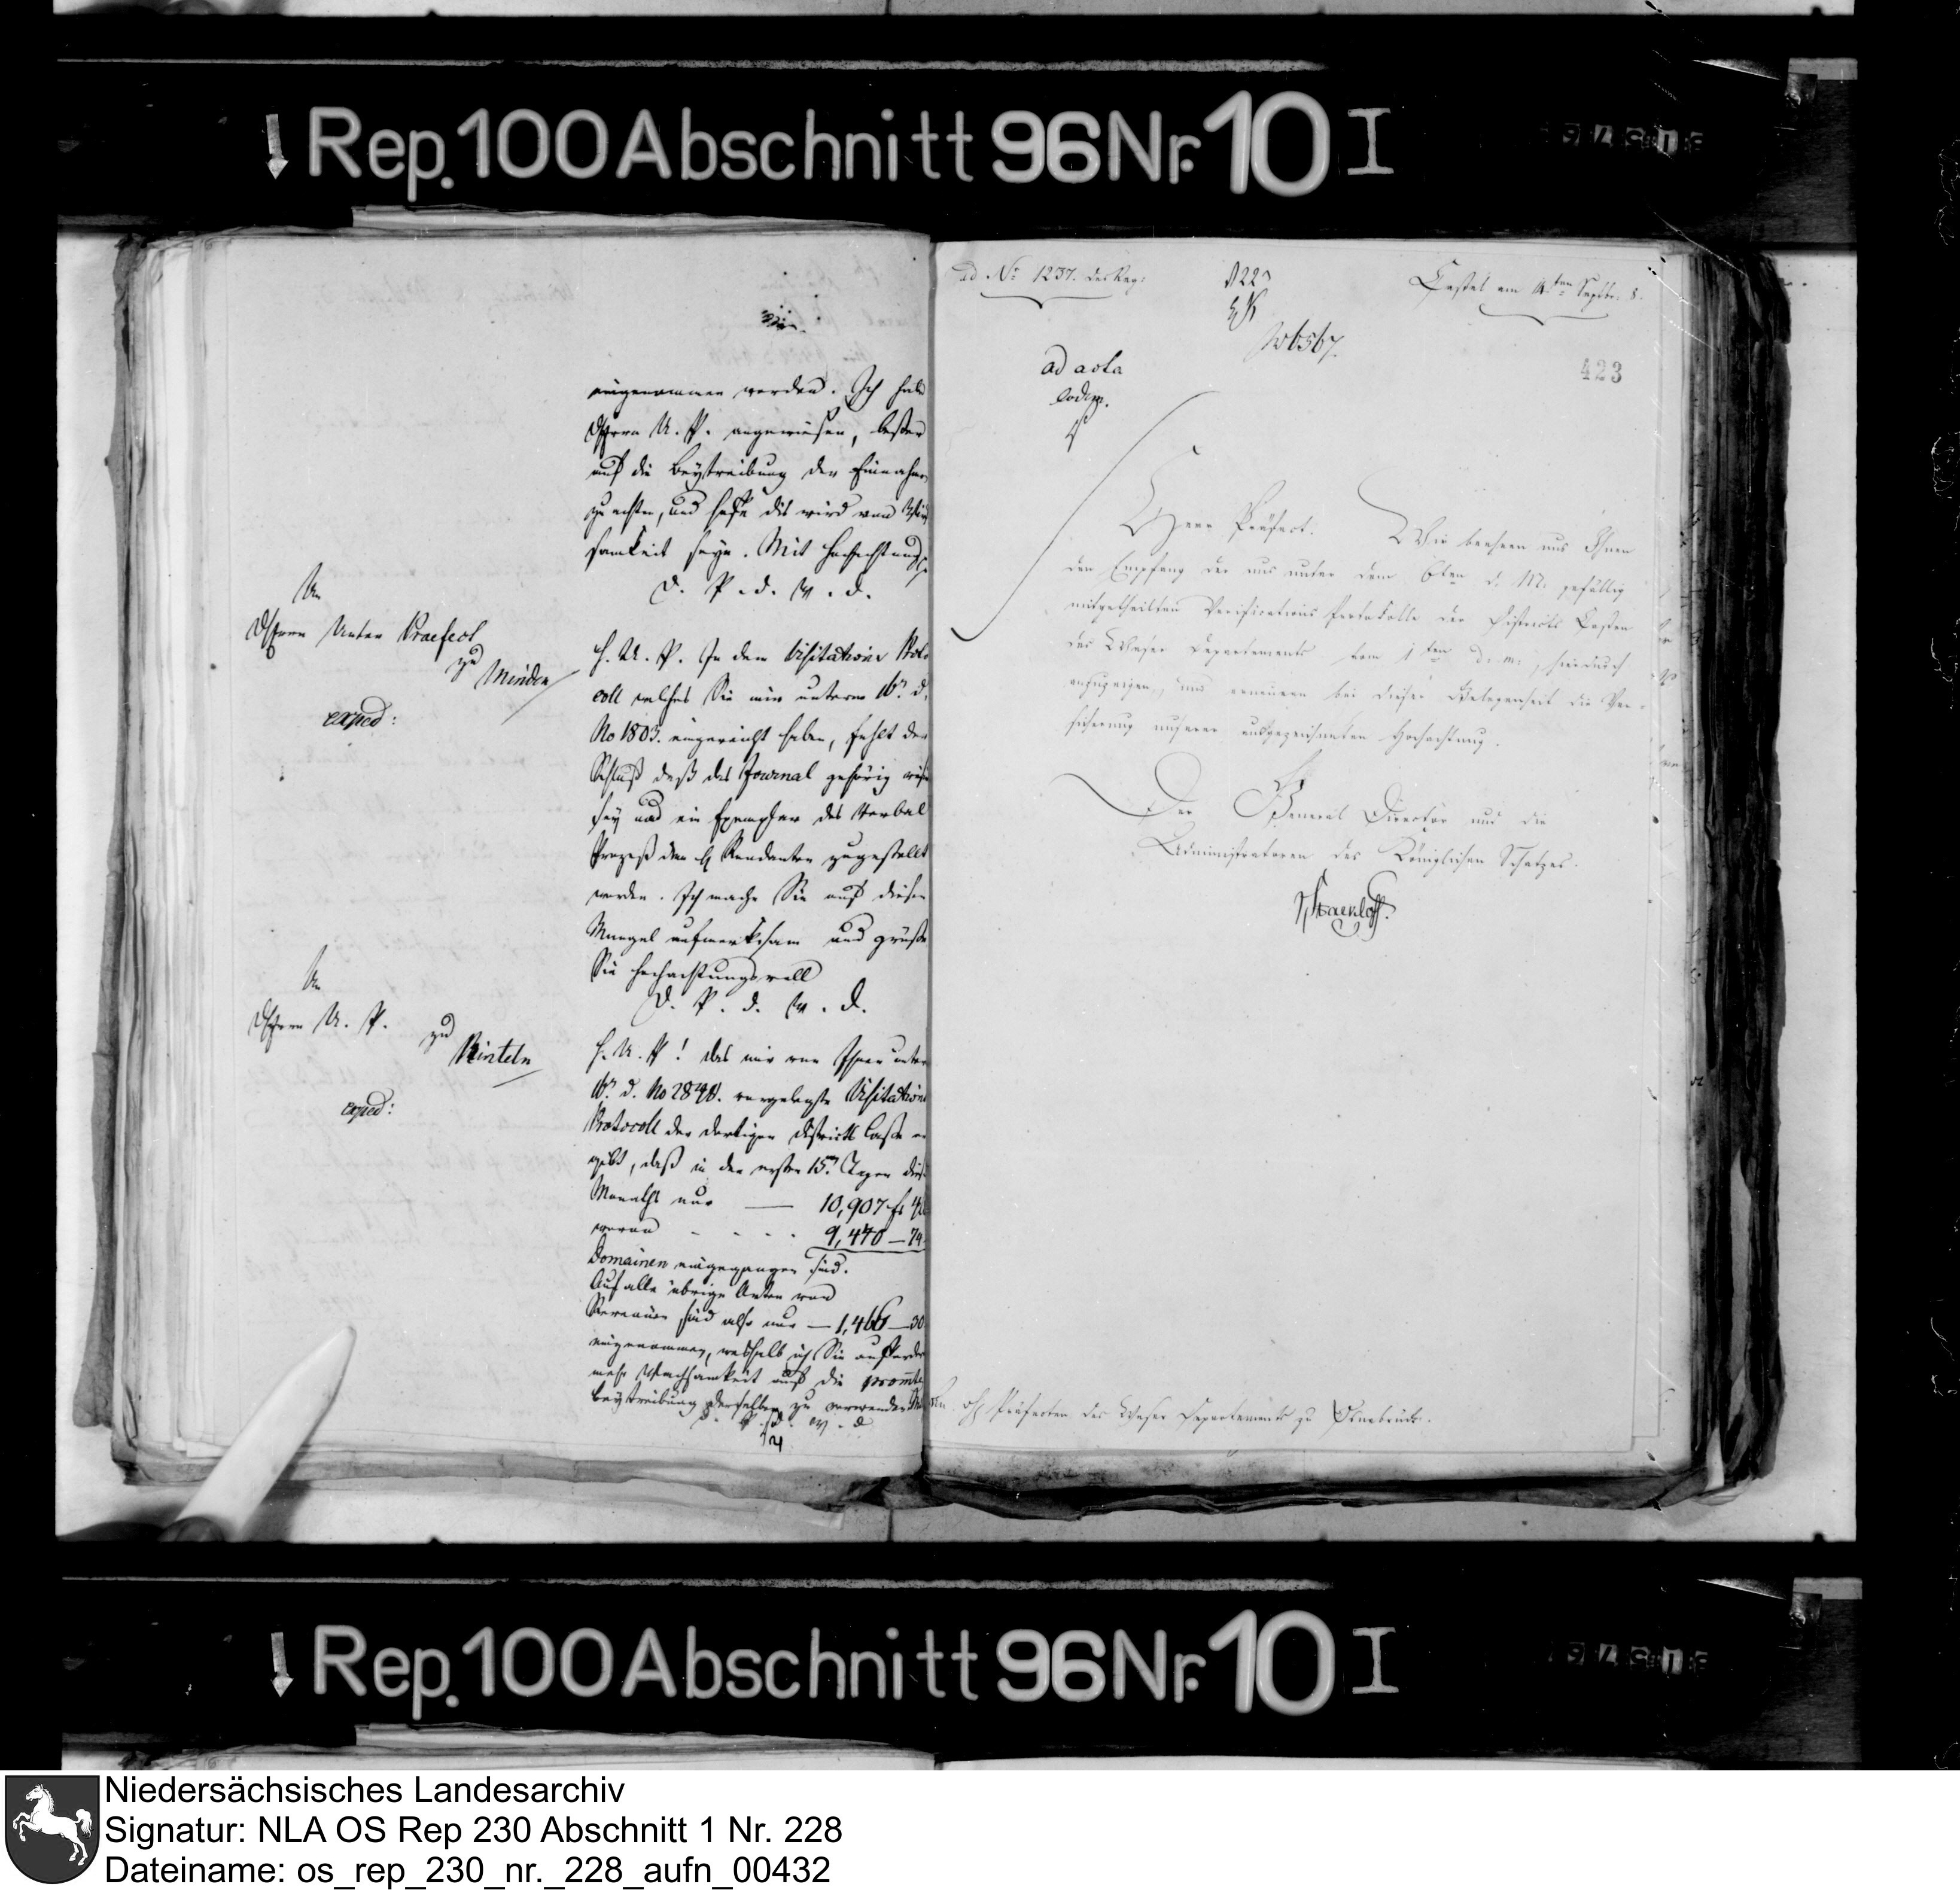 Rep. 100 Abschnitt 96 Nr. 10 I
eingenommen worden. Ich habe
Herrn U. P. angewiesen, besser
auf die Beytreibung der Einnahme
zu achten, und hoffe dis wird von
samkeit seyn. Mit Hochachtung
D. P. d. W. D.
An
Herrn Unter Praefect
zu
Minden
exped:
H. U. P. In dem Visitations Proto
coll welches Sie mir unterm 16n d.
No 1803. eingereicht haben, fehlt der
Schluß daß das Journal gehörig
sey und ein Exemplar des Verbal
Prozeß dem H Rendanten zugestellt
worden. Ich mache Sie auf diesen
Mangel aufmerksam und grüße
Sie hochachtungsvoll
D. P. d. W. D.
An
Herrn U. P.
zu
Rinteln
exped:
H. U. P! Das mir von Ihnen unter
16n d. No 2848. vorgelegte Visitations
Protocoll der dortigen Districts Casse er
gibt, daß in den ersten 15n Tagen dies
Monaths nur — 10,907 fr
wovon - - - - 9,440 — 74
Domainen eingegangen sind.
Auf alle übrige Arten von
Revenüen sind also nur — 1,466 — 30
eingenommen, weshalb ich Sie auffordere
mehr Wachsamkeit auf die promte
Beytreibung derselben zu verwenden
D. P. d. W. D
ad. No 1237. des Reg:
Cassel am ten Septbr. 8.
No 6567.
423
ad acta
eodem.
Herr Präfect. Wir beehren uns Ihnen
den Empfang der uns unter dem 6ten d. M. gefällig
mitgetheilten Verifications Protokolle der Districts Cassen
des Weser Departements vom 1ten d. m., hierdurch
anzuzeigen, und erneuern bei dieser Gelegenheit die Ver-
sicherung unserer ausgezeichneten Hochachtung.
Der General Director und die
Administratoren des Königlichen Schatzes.
Präfecten des Weser Departements zu Osnabrück.
Rep. 100 Abschnitt 96 Nr. 10 I
Niedersächsisches Landesarchiv
Signatur: NLA OS Rep 230 Abschnitt 1 Nr. 228
Dateiname: os_rep_230_nr._228_aufn_00432